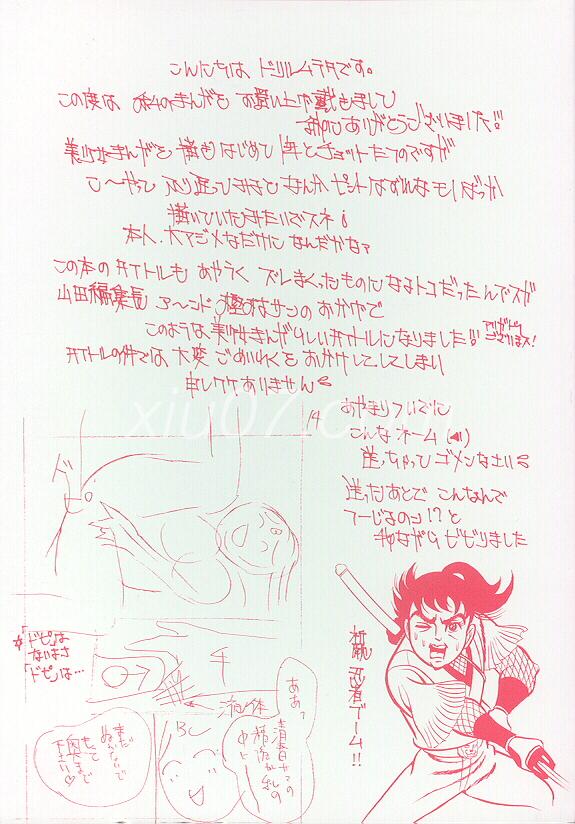 こんにちは ドリルムラタです。
この度は 私のまんがを お買い上げ戴きまして
まことにありがとうございました!!
美少女まんがを 描きはじめて 1年とチョットたつのですが
こ〜やって ふり返ってみると なんか ピントはずれなモノばっか
描いていたみたいですネ
本人、大マジメなだけに なんだかな?
この本のタイトルも あやうく ズレまくったものになるトコだったんでスガ
山田編集長 ア〜ンド サンのおかげで
このような美少女まんがらしいタイトルになりました!! アリガトウございまス!
タイトルの件では 大変ごめいわくを おかけして、してしまい
申しワケありません
あやまりついでに
こんなネーム(◀)
送っちゃって ゴメンなさい
送ったあとで こんなんで
つーじるのか!?と
我ながら ビビりました
14
ド
ピ
☆「ドピ」は
ないまさ
「ドピ」は…
チ
液体
ああっ
青春
BC
まだ
ぬかないで
もっと
奥まで
下さい♡
祝 忍者ブーム!!
xiu07.com